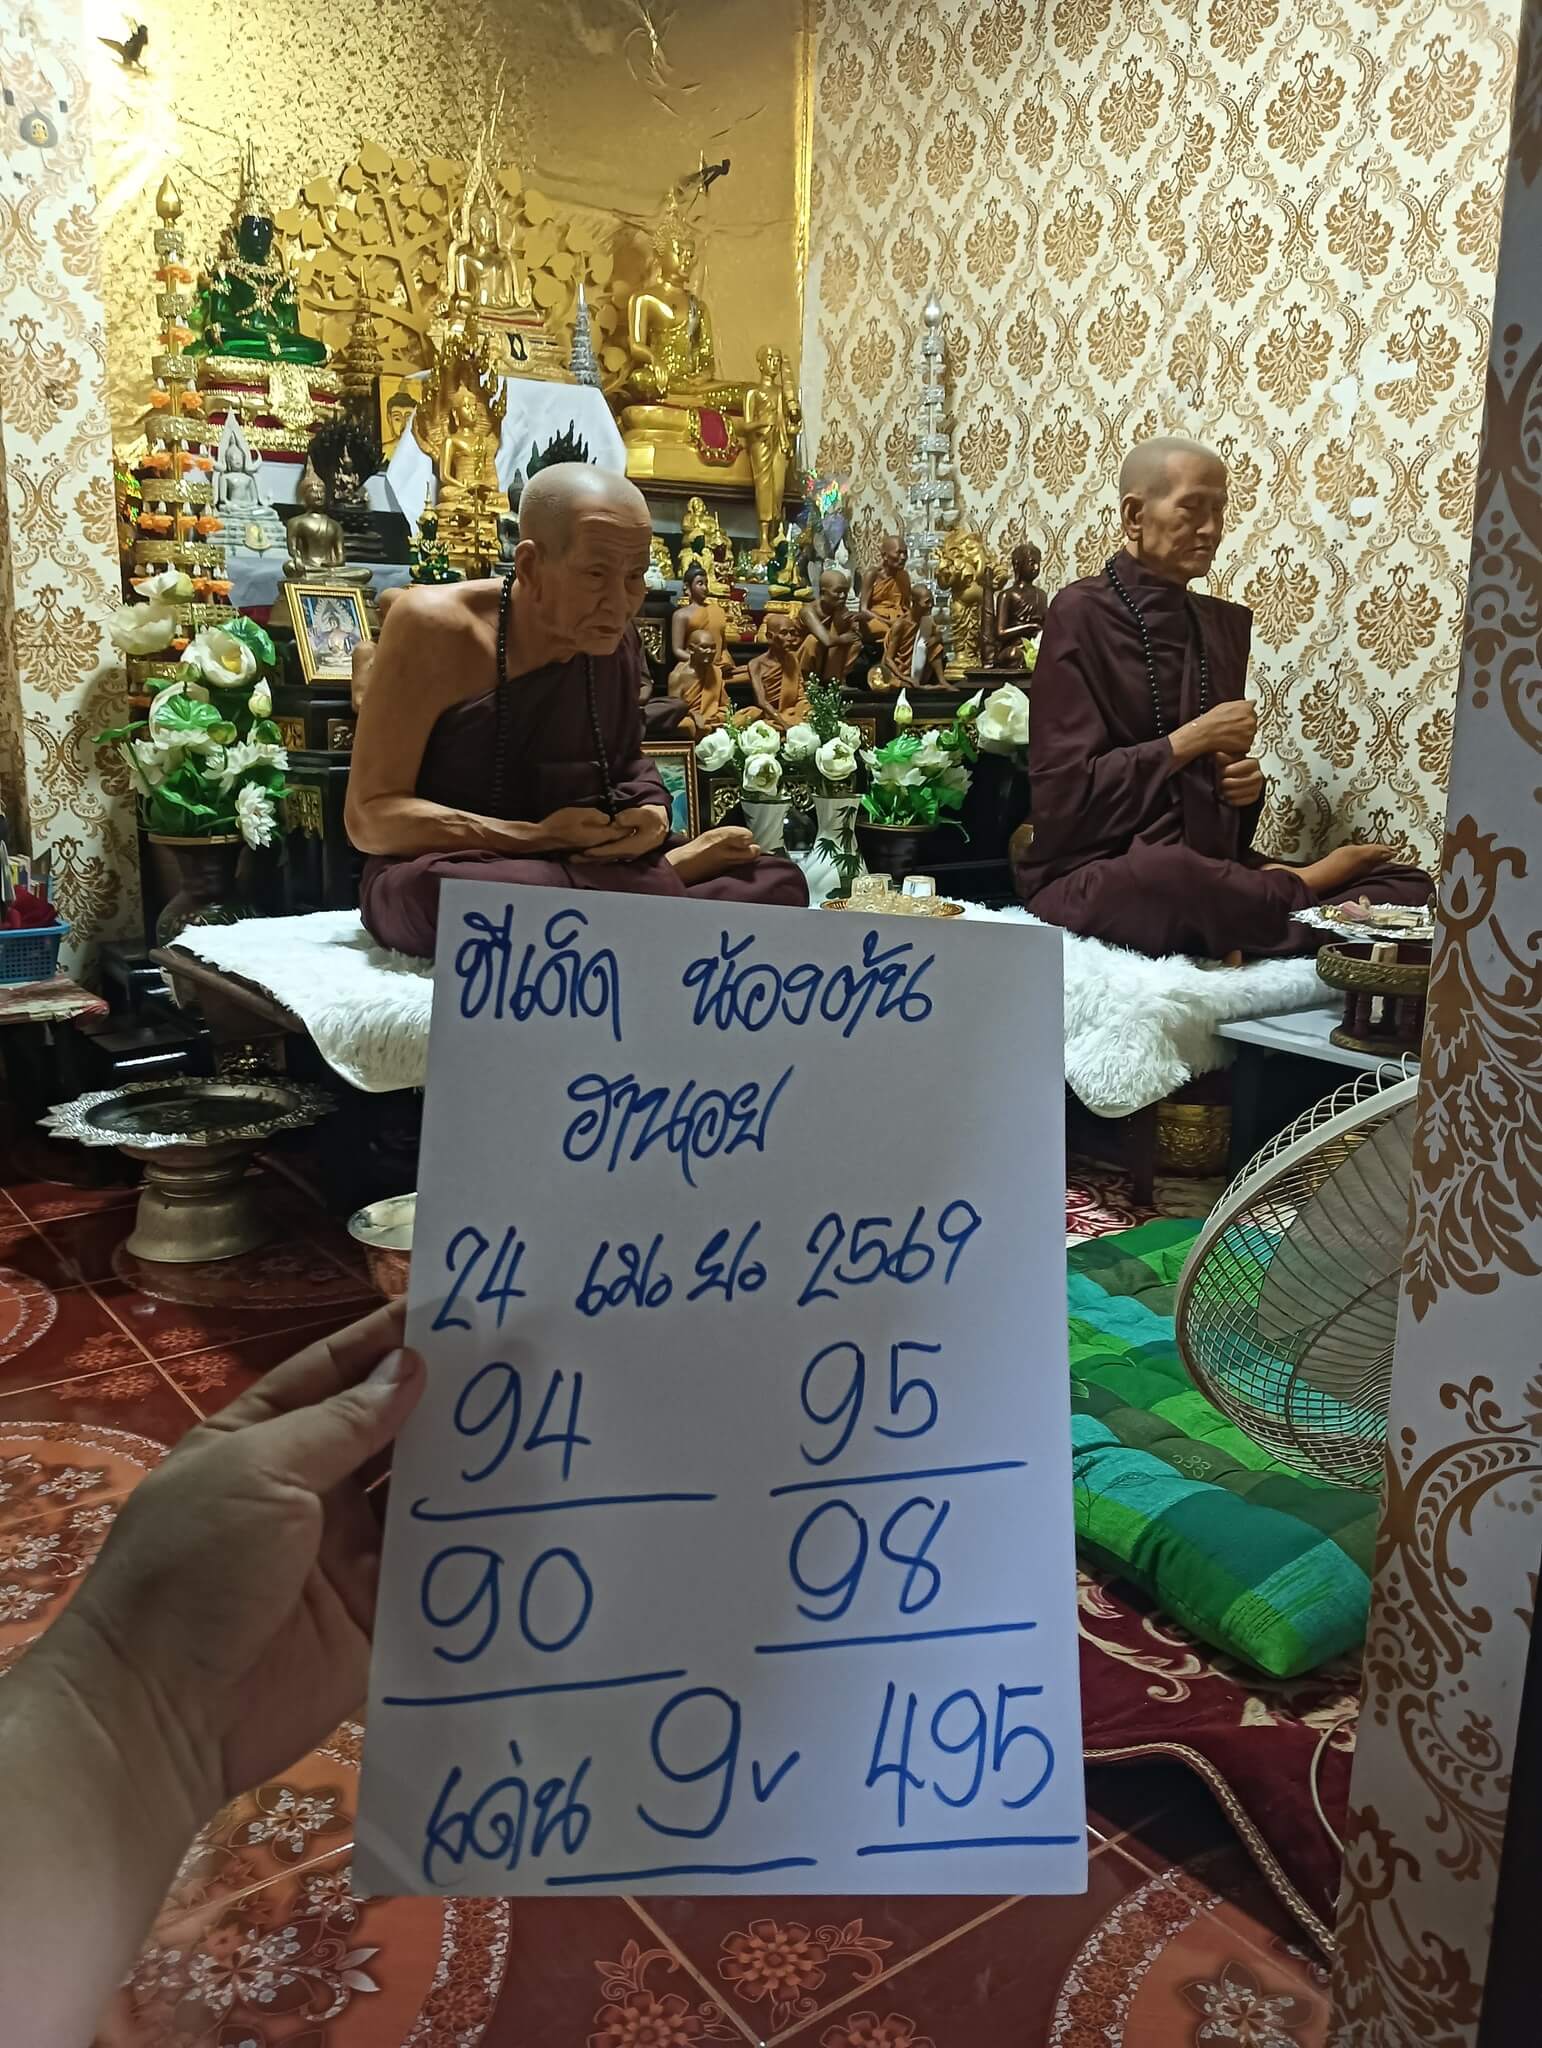 ทีเด็ด น้องต้น
ฮานอย
24 เม.ย. 2569
94 95
90 98
เด่น 9 495